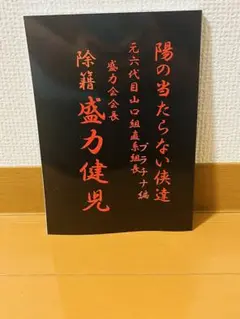 陽の当たらない侠達
プラチナ編
元六代目山口組直系組長
盛力会会長
除籍 盛力健児